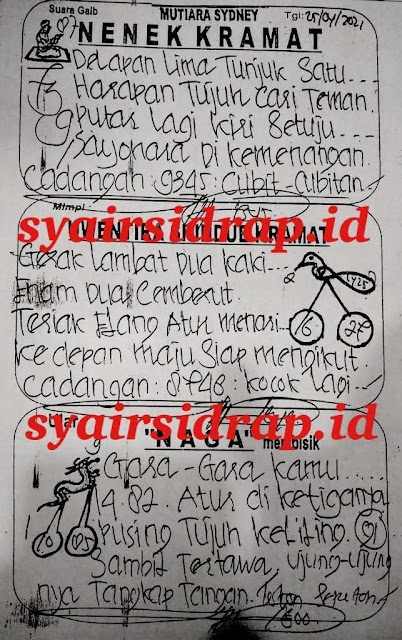 Suara Gaib
MUTIARA SYDNEY
Tgl: 25/04/2021
NENEK KRAMAT
Delapan Lima Tunjuk Satu...
Harapan Tujuh Cari Teman.
Putar Lagi Kiri Setuju....
Sayonara Di Kemenangan.
Cadangan: 9345: Cubit-Cubitan
Mimpi:
syairsidrap.id
KRAMAT
Gerak Lambat Dua Kaki...
Enam Dua Cemberut.
Teriak Elang Atur Menari...
Ke depan maju Siap mengikut.
Cadangan: kocok lagi
16
27
syairsidrap.id
Ular
"NAGA" membisik
Gara-Gara Kamu.....
4.82. Atur di Ketiganya
Pusing Tujuh Keliling.
Sambil Tertawa, Ujung-Ujung
nya Tangkap Tangan.